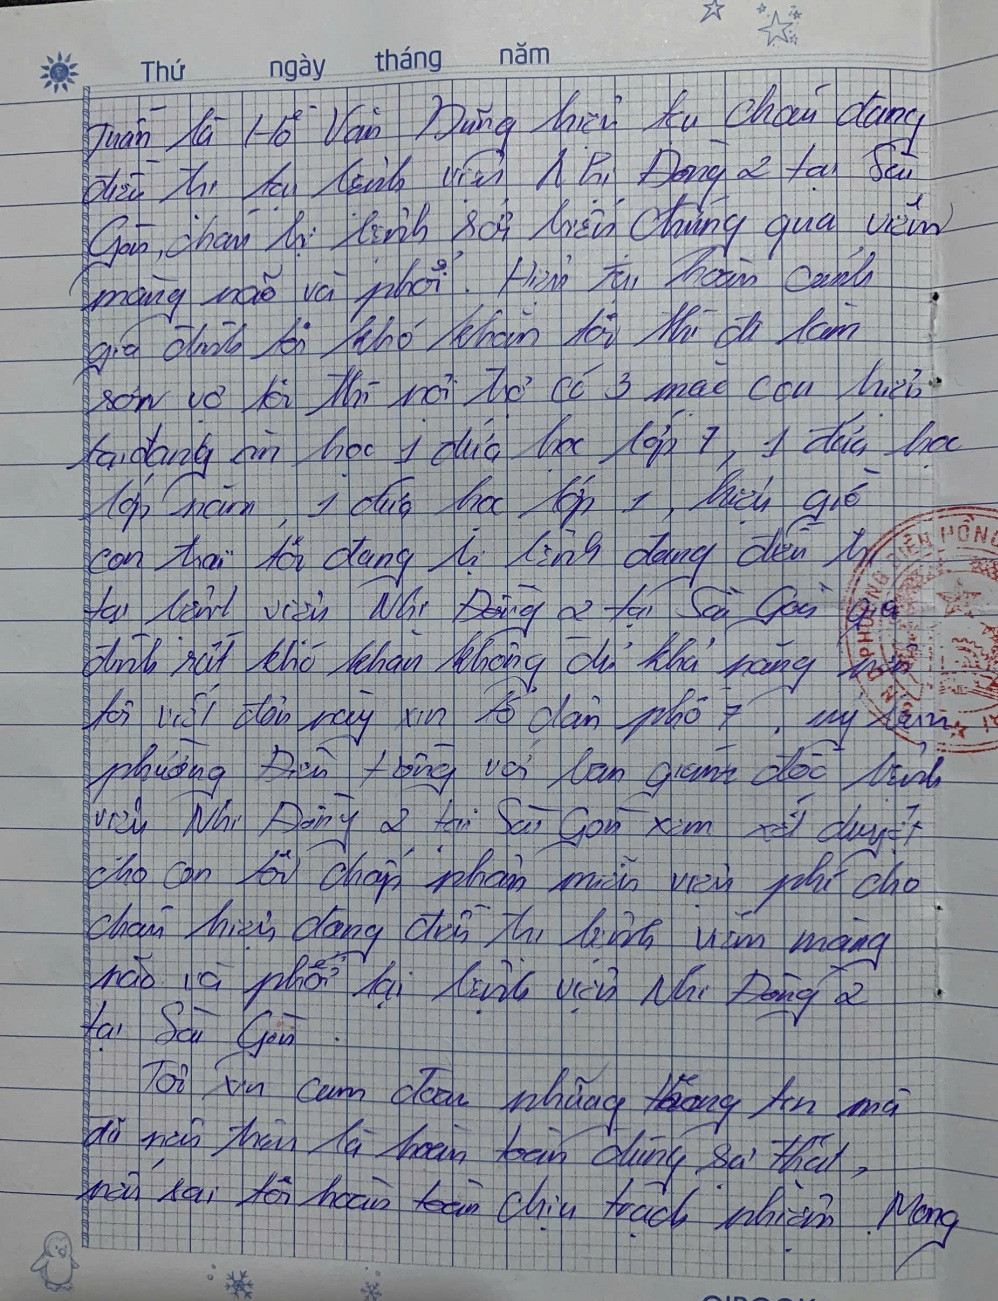 Thứ ngày tháng năm
Tuấn là Hồ Văn Dũng hiện tại cháu đang
điều trị tại bệnh viện Nhi Đồng 2 tại Sài
Gòn, cháu bị bệnh sởi biến chứng qua viêm
màng não và phổi. Hiện tại hoàn cảnh
gia đình tôi khó khăn tôi thì đi làm
sơn vợ tôi thì nội trợ có 3 con hiện
tại đang ăn học 1 đứa học lớp 7, 1 đứa học
lớp năm, 1 đứa học lớp 1, hiện giờ
con trai tôi đang bị bệnh đang điều trị
tại bệnh viện Nhi Đồng 2 tại Sài Gòn gia
đình rất khó khăn không đủ khả năng nên
tôi viết đơn này xin tổ dân phố 7,
phường Điện Hồng với ban giám đốc bệnh
viện Nhi Đồng 2 tại Sài Gòn xem xét duyệt
cho con tôi chấp miễn viện phí cho
cháu hiện đang điều trị bệnh viêm màng
não và phổi tại bệnh viện Nhi Đồng 2
tại Sài Gòn.
Tôi xin cam đoan những thông tin mà
đã nêu trên là hoàn toàn đúng sự thật,
nếu sai tôi hoàn toàn chịu trách nhiệm. Mong